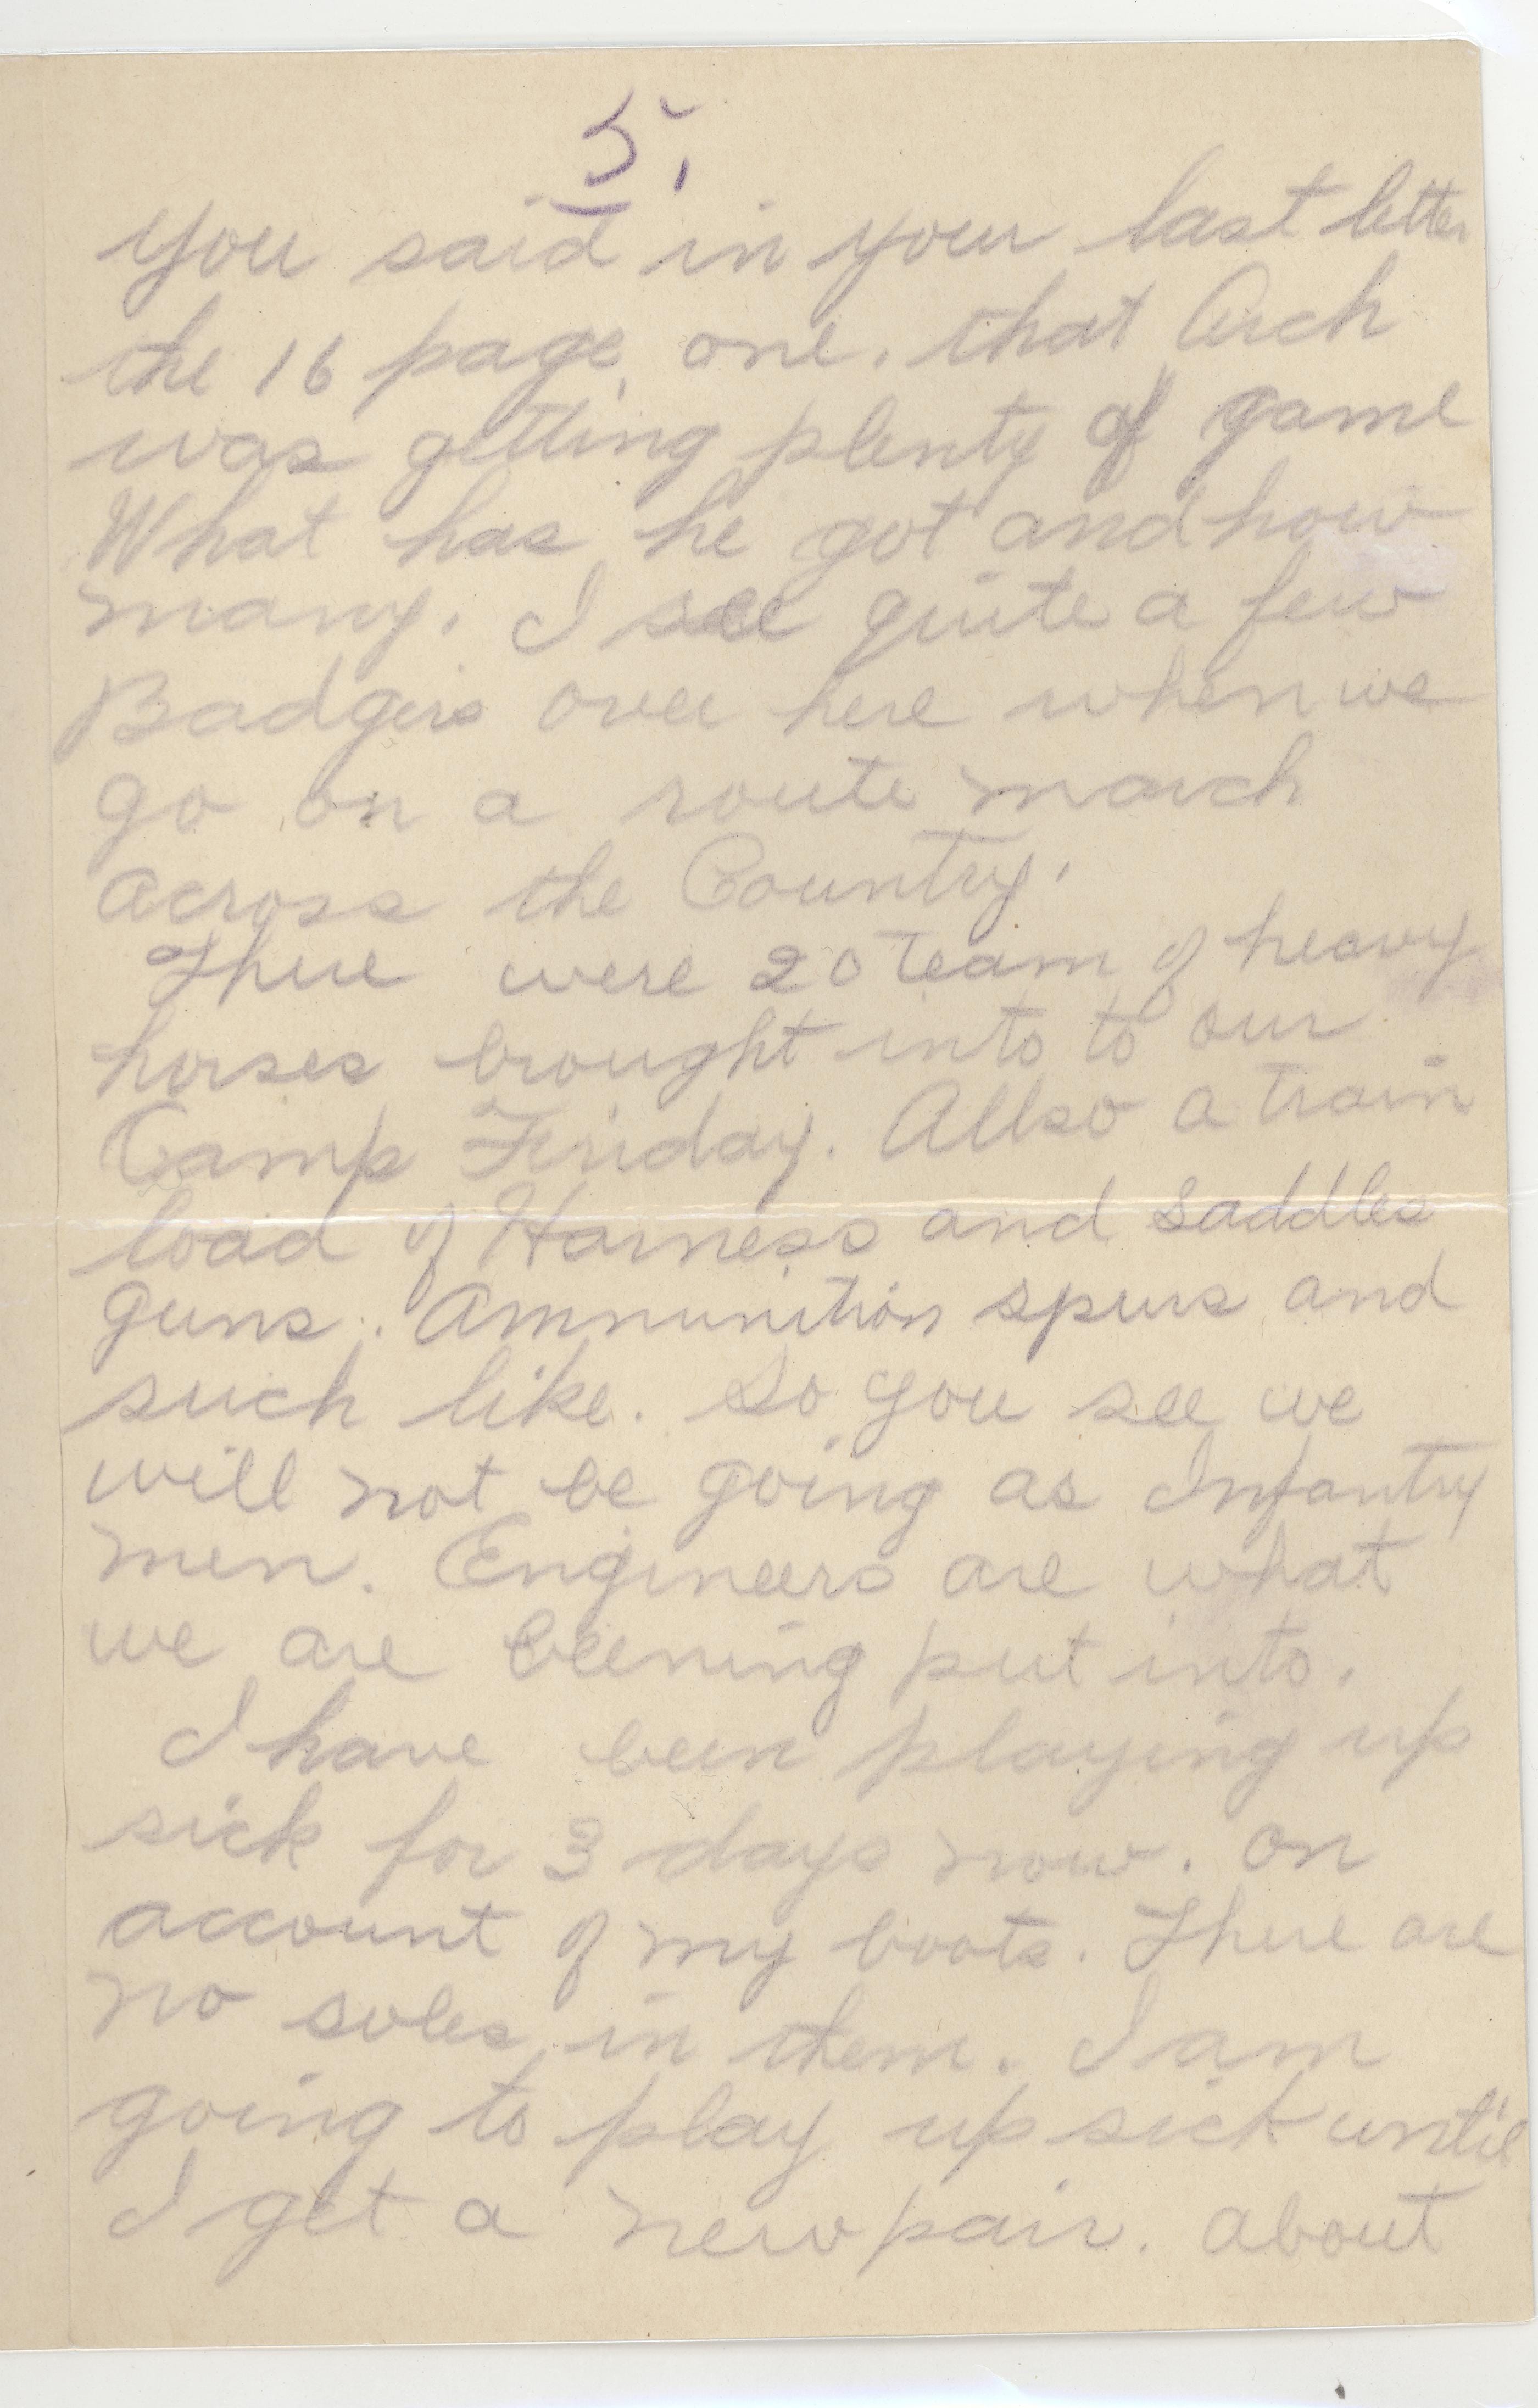 5.
you said in your last letter
the 16 page, one. that Arch
was getting plenty of game
What has he got and how
many. I see quite a few
Badgers over here when we
go on a route march
across the Country.
There were 20 team of heavy
horses brought into to our
Camp Friday. Allso a train
load of Harness and saddles
guns. Ammunition spurs and
such like. So you see we
will not be going as Infantry
men. Engineers are what
we are beening put into.
I have been playing up
sick for 3 days now. on
account of my boots. There are
no soles in them. I am
going to play up sick until
I get a new pair. about